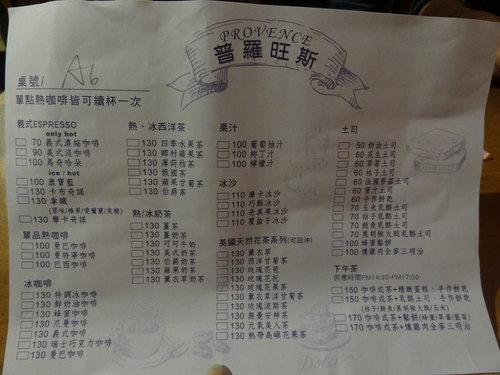 PROVENCE
普羅旺斯
桌號/ A6
單點熱咖啡皆可續杯一次
義式ESPRESSO
only hot
70 義式濃縮咖啡
90 美式淡咖啡
100 馬奇哈朵
ice / hot
100 康寶藍
130 卡布奇諾
130 拿鐵
(原味/榛果/愛爾蘭/焦糖)
130 摩卡奇諾
單品熱咖啡
100 曼巴咖啡
100 曼特寧咖啡
100 巴西咖啡
冰咖啡
130 特調冰咖啡
130 鮮奶油咖啡
130 蜂蜜咖啡
130 爪曼咖啡
130 義式咖啡
130 瑞士巧克力咖啡
130 曼巴咖啡
熱、冰西洋茶
130 四季水果茶
130 鄉村蘋果茶
130 薄荷桔茶
130 俄國茶
130 蘋果甘菊茶
130 伯爵茶
熱/冰奶茶
130 薑茶
130 薑奶茶
130 可可牛奶
130 美式奶茶
130 伯爵奶茶
130 蘋果奶茶
130 薰衣草奶茶
果汁
100 葡萄柚汁
100 柳丁汁
100 檸檬汁
冰沙
110 摩卡冰沙
110 巧酥冰沙
110 奇異果冰沙
110 覆盆子冰沙
英國天然花茶系列(可回沖)
130 薰衣草
130 西洋甘菊茶
130 玫瑰花苞
130 玫瑰花托
130 玫瑰花果茶
130 薰衣草洋甘菊茶
130 玫瑰波斯茶
130 無憂安神茶
130 元氣美人茶
130 熱帶島嶼花果茶
土司
50 奶油土司
60 花生土司
60 草莓土司
60 桔子土司
60 法國香蒜土司
60 蜜汁土司
60 手作餅乾
70 玉米乳酪土司
70 桔子乳酪土司
70 鮪魚乳酪土司
70 黑胡椒火腿乳酪土司
100 蜂蜜鬆餅
100 燻雞肉全麥三明治
下午茶
供應時間PM14:30-PM17:00
150 咖啡或茶+精緻蛋糕、手作餅乾
150 咖啡或茶+乳酪土司、手作餅乾
(桔子/鮪魚/黑胡椒火腿/玉米)
170 咖啡或茶+鬆餅(蜂蜜/草莓/藍莓)
170 咖啡或茶+燻雞肉全麥三明治